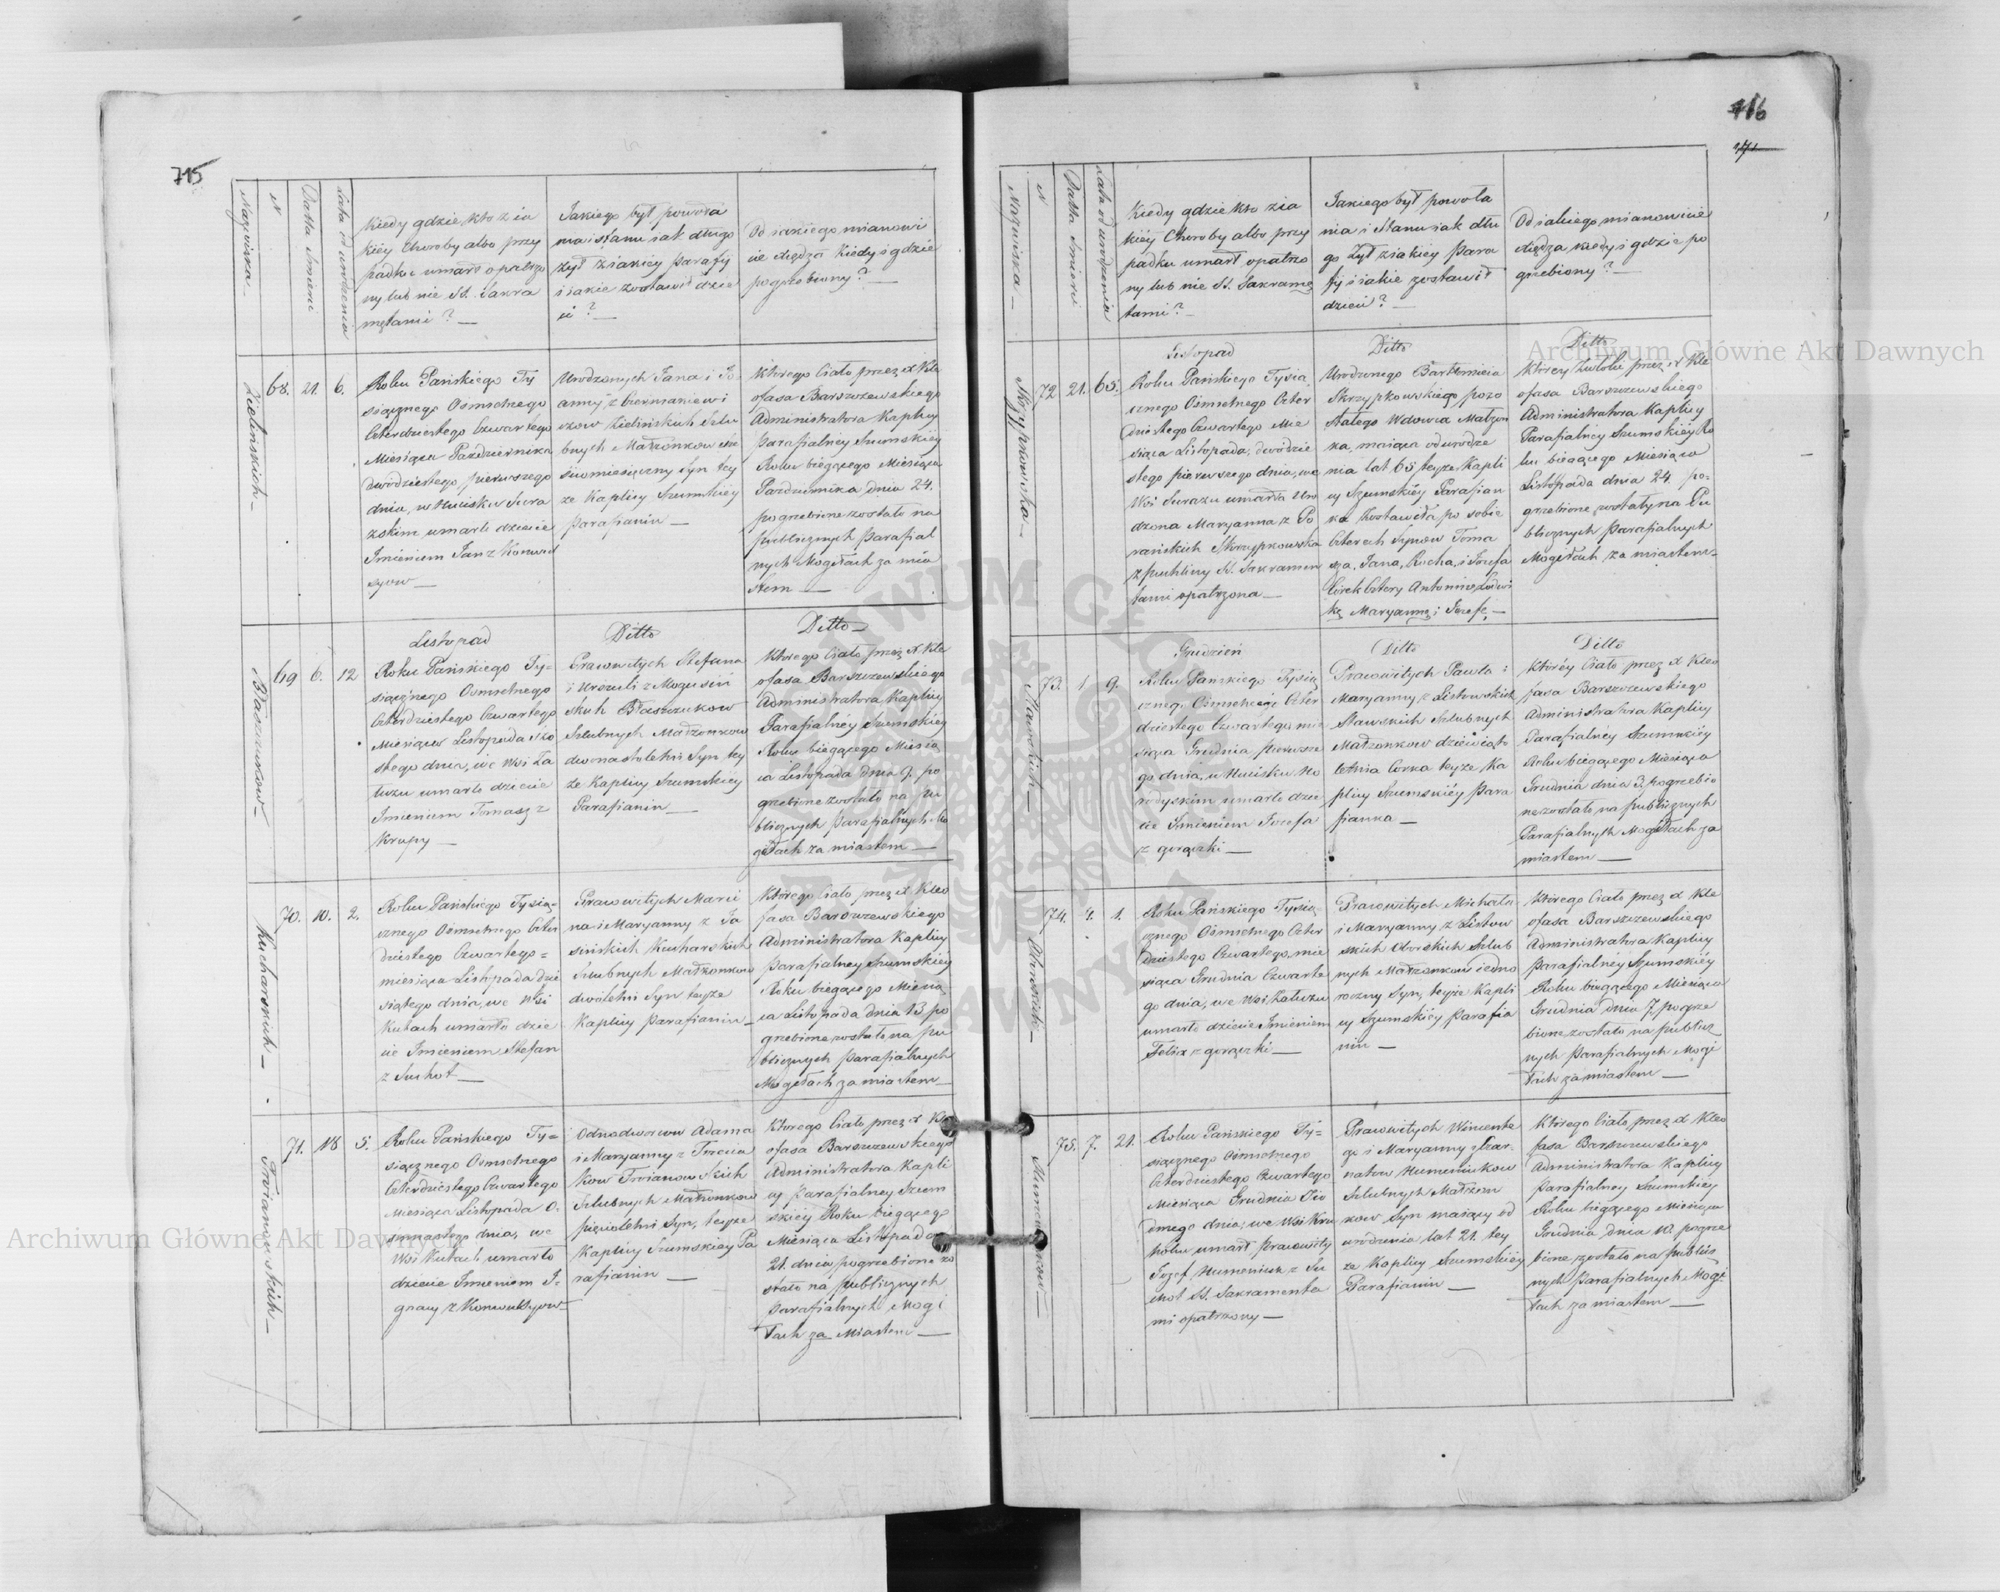 715
Nazwiska
N
Datta śmierci
Lata od urodzenia
Kiedy gdzie kto z ia
kiey Choroby albo przy
padku umarł opatrzo
ny lub nie SS. Sakra
mętami?
Jakiego był powoła
nia i stanu iak długo
żył z iakiey Parafij
i iakie zostawił dzie
ci?
Od iakiego mianowi
cie Xiędza kiedy i gdzie
pogrzebiony?
Zielińskich
68. 21. 6.
Roku Pańskiego Ty
siącznego Osmsetnego
Czterdziestego Czwartego
Miesiąca Pazdziernika
dwódziestego pierwszego
dnia, w Hucisku Sura
zskim umarło dziecie
Imieniem Jan z Konwul
syow
Urodzonych Jana i Jo
anny z
Zielińskich szlu
bnych Małżonkow
sciomiesięczny Syn tey
że Kaplicy Szumskiéy
Parafianin
Którego Ciało przez X Kle
ofasa Barszczewskiego
Administratora Kaplicy
Parafialney Szumskiéy
Roku biegącego Miesiąca
Pazdziernika dnia 24.
pogrzebione zostało na
publicznych Parafial
nych Mogiłach za mia
stem
Błaszczuków
69 6. 12
Listopad
Roku Pańskiego Ty=
siącznego Osmsetnego
Czterdziestego Czwartego
Miesiąca Listopada szo
stego dnia, we Wsi Ła
tuzu umarło dziecie
Imieniem Tomasz z
Krupy
Ditto
Prawowitych Stefana
i Urszuli z
Błaszczukow
Szlubnych Małżonkow
dwonastoletni Syn tey
że Kaplicy Szumskiéy
Parafianin
Ditto
Którego Ciało przez X Kle
ofasa Barszczewskiego
Administratora Kaplicy
Parafialnéy Szumskiéy
Roku biegącego Miesią
ca Listopada dnia 9. po
grzebione zostało na pu
blicznych Parafialnych Mo
giłach za miastem
Kucharskich
70. 10. 2.
Roku Pańskiego Tysią=
cznego Osmsetnego Czter
dziestego Czwartego=
miesiąca Listopada dzie
siątego dnia, we Wsi
Kutach umarło dzie
cie Imieniem Stefan
z Suchot
Prawowitych Marci
na i Maryanny z Ja
sińskich Kucharskich
Szlubnych Małżonkow
dwóletni Syn teyże
Kaplicy Parafianin
Którego Ciało przez X Kleo
fasa Barszczewskiego
Administratora Kaplicy
Parafialney Szumskiey
Roku biegącego Miesią
ca Listopada dnia 13. po
grzebione zostało na pu
blicznych Parafialnych
Mogiłach za miastem
Troianowskich
71. 18 5.
Roku Pańskiego Ty=
siącznego Osmsetnego
Czterdziestego Czwartego
Miesiąca Listopada O.
smnastego dnia, we
Wsi Kutach umarło
dziecie Imieniem I.
gnacy z Konwulsyow
Odnodworcow Adama
i Maryanny z
Troianowskich
Szlubnych Małżonkow
pięcioletni Syn, teyże
Kaplicy Szumskiéy Pa
rafianin
Którego Ciało przez X Kle
ofasa Barszczewskiego
Administratora Kapli
cy Parafialney Szum
skiéy Roku biegącego
Miesiąca Listopada
21. dnia pogrzebione zo
stało na publicznych
Parafialnych Mogi
łach za Miastem
716
Nazwiska
N
Datta śmierci
Lata od urodzenia
Kiedy gdzie kto z ia
kiéy Choroby albo przy
padku umarł opatrzo
ny lub nie SS. Sakramę
tami?
Jakiego był powoła
nia i Stanu iak dłu
go żył z iakiey Para
fij i iakie zostawił
dzieci?
Od iakiego mianowicie
Xiędza kiedy i gdzie po
grzebiony?
Skrzypkowska
72 21. 65.
Listopad
Roku Pańskiego Tysią
cznego Osmsetnego Czter
dziestego Czwartego Mie
siąca Listopada, dwódzie
stego pierwszego dnia, we
Wsi Surazu umarła Uro
dzona Maryanna z Po
rańskich Skrzypkowska
z puchliny SS. Sakramen
tami opatrzona
Ditto
Urodzonego Bartłomieia
Skrzypkowskiego pozo
stałego Wdowca Małżon
ka, maiąca od urodze
nia lat 65 teyże Kapli
cy Szumskiéy Parafian
ka Zostawiła po sobie
Czterech Synow Toma
sza, Jana, Rocha, i Jozefa
Corek Cztery Antoninę, Ludwi
kę, Maryannę i Jozefę
Ditto
Którey Zwłoki przez X Kle
ofasa Barszczewskiego
Administratora Kaplicy
Parafialnéy Szumskiéy Ro
ku biegącego Miesiąca
Listopada dnia 24. po-
grzebione zostały na Pu
blicznych Parafialnych
Mogiłach za miastem
Stawskich
73. 1 9.
Grudzień
Roku Pańskiego Tysią
cznego Osmsetnego Czter
dziestego Czwartego mie
siąca Grudnia pierwsze
go dnia, w Hucisku
umarło dzie
cie Imieniem Jozefa
z gorączki
Ditto
Prawowitych Pawła i
Maryanny z Listowskich
Stawskich Szlubnych
Małżonkow dziéwięcio
letnia Corka teyże Ka
plicy Szumskiéy Para
fianka
Ditto
Któréy Ciało przez X Kleo
fasa Barszczewskiego
Administratora Kaplicy
Parafialney Szumskiéy
Roku biegącego Miesiąca
Grudnia dnia 3. pogrzebio
ne zostało na publicznych
Parafialnych Mogiłach za
miastem
74. 4. 1.
Roku Pańskiego Tysią=
cznego Osmsetnego Czter
dziestego Czwartego, mie
siąca Grudnia Czwarte
go dnia, we Wsi Łatuzu
umarło dziecie Imieniem
Felix z gorączki
Prawowitych Michała
i Maryanny z Listow
skich Szlub
nych Małżonkow iedno
roczny Syn, teyże Kapli
cy Szumskiéy Parafia
nin
Którego Ciało przez X Kle
ofasa Barszczewskiego
Administratora Kaplicy
Parafialnéy Szumskiéy
Roku biegącego Miesiąca
Grudnia dnia 7. pogrze
bione zostało na publicz
nych Parafialnych Mogi
łach za miastem
Humeniukow
75. 7. 21.
Roku Pańskiego Ty=
siącznego Osmsetnego
Czterdziestego Czwartego
Miesiąca Grudnia Sio
dmego dnia, we Wsi
umarł Prawowity
Jozef Humeniuk z Su
chot SS. Sakramenta
mi opatrzony
Prawowitych Wincente
go i Maryanny z
Humeniukow
Szlubnych Małżon
kow Syn maiący od
urodzenia lat 21. tey
że Kaplicy Szumskiéy
Parafianin
Którego Ciało przez X Kleo
fasa Barszczewskiego
Administratora Kaplicy
Parafialney Szumskiey
Roku biegącego Miesiąca
Grudnia dnia 10. pogrze
bione zostało na publicz
nych Parafialnych Mogi
łach za miastem
Archiwum Główne Akt Dawnych
Archiwum Główne Akt Dawnych